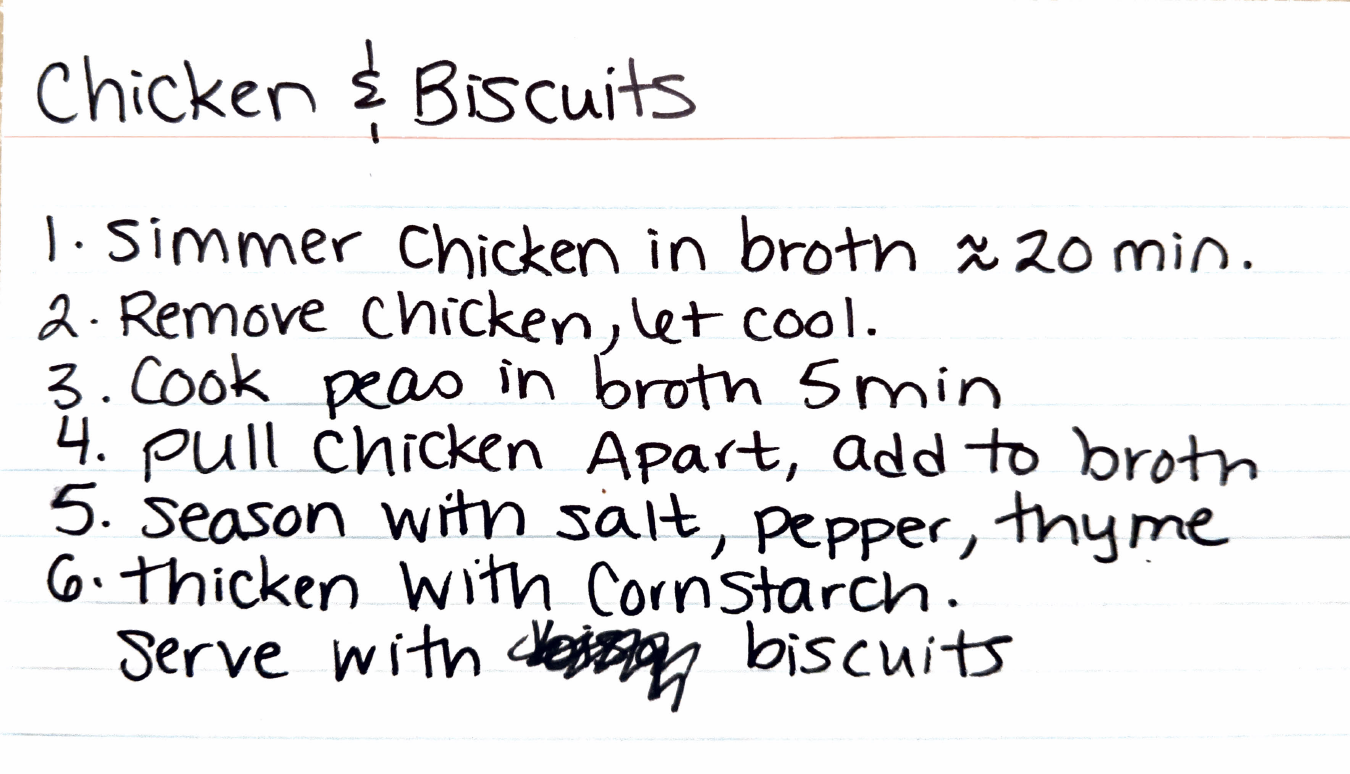 Chicken & Biscuits
1. Simmer Chicken in broth ≈ 20 min.
2. Remove Chicken, let cool.
3. Cook peas in broth 5 min
4. pull Chicken Apart, add to broth
5. Season with salt, pepper, thyme
6. thicken with Cornstarch.
Serve with biscuits